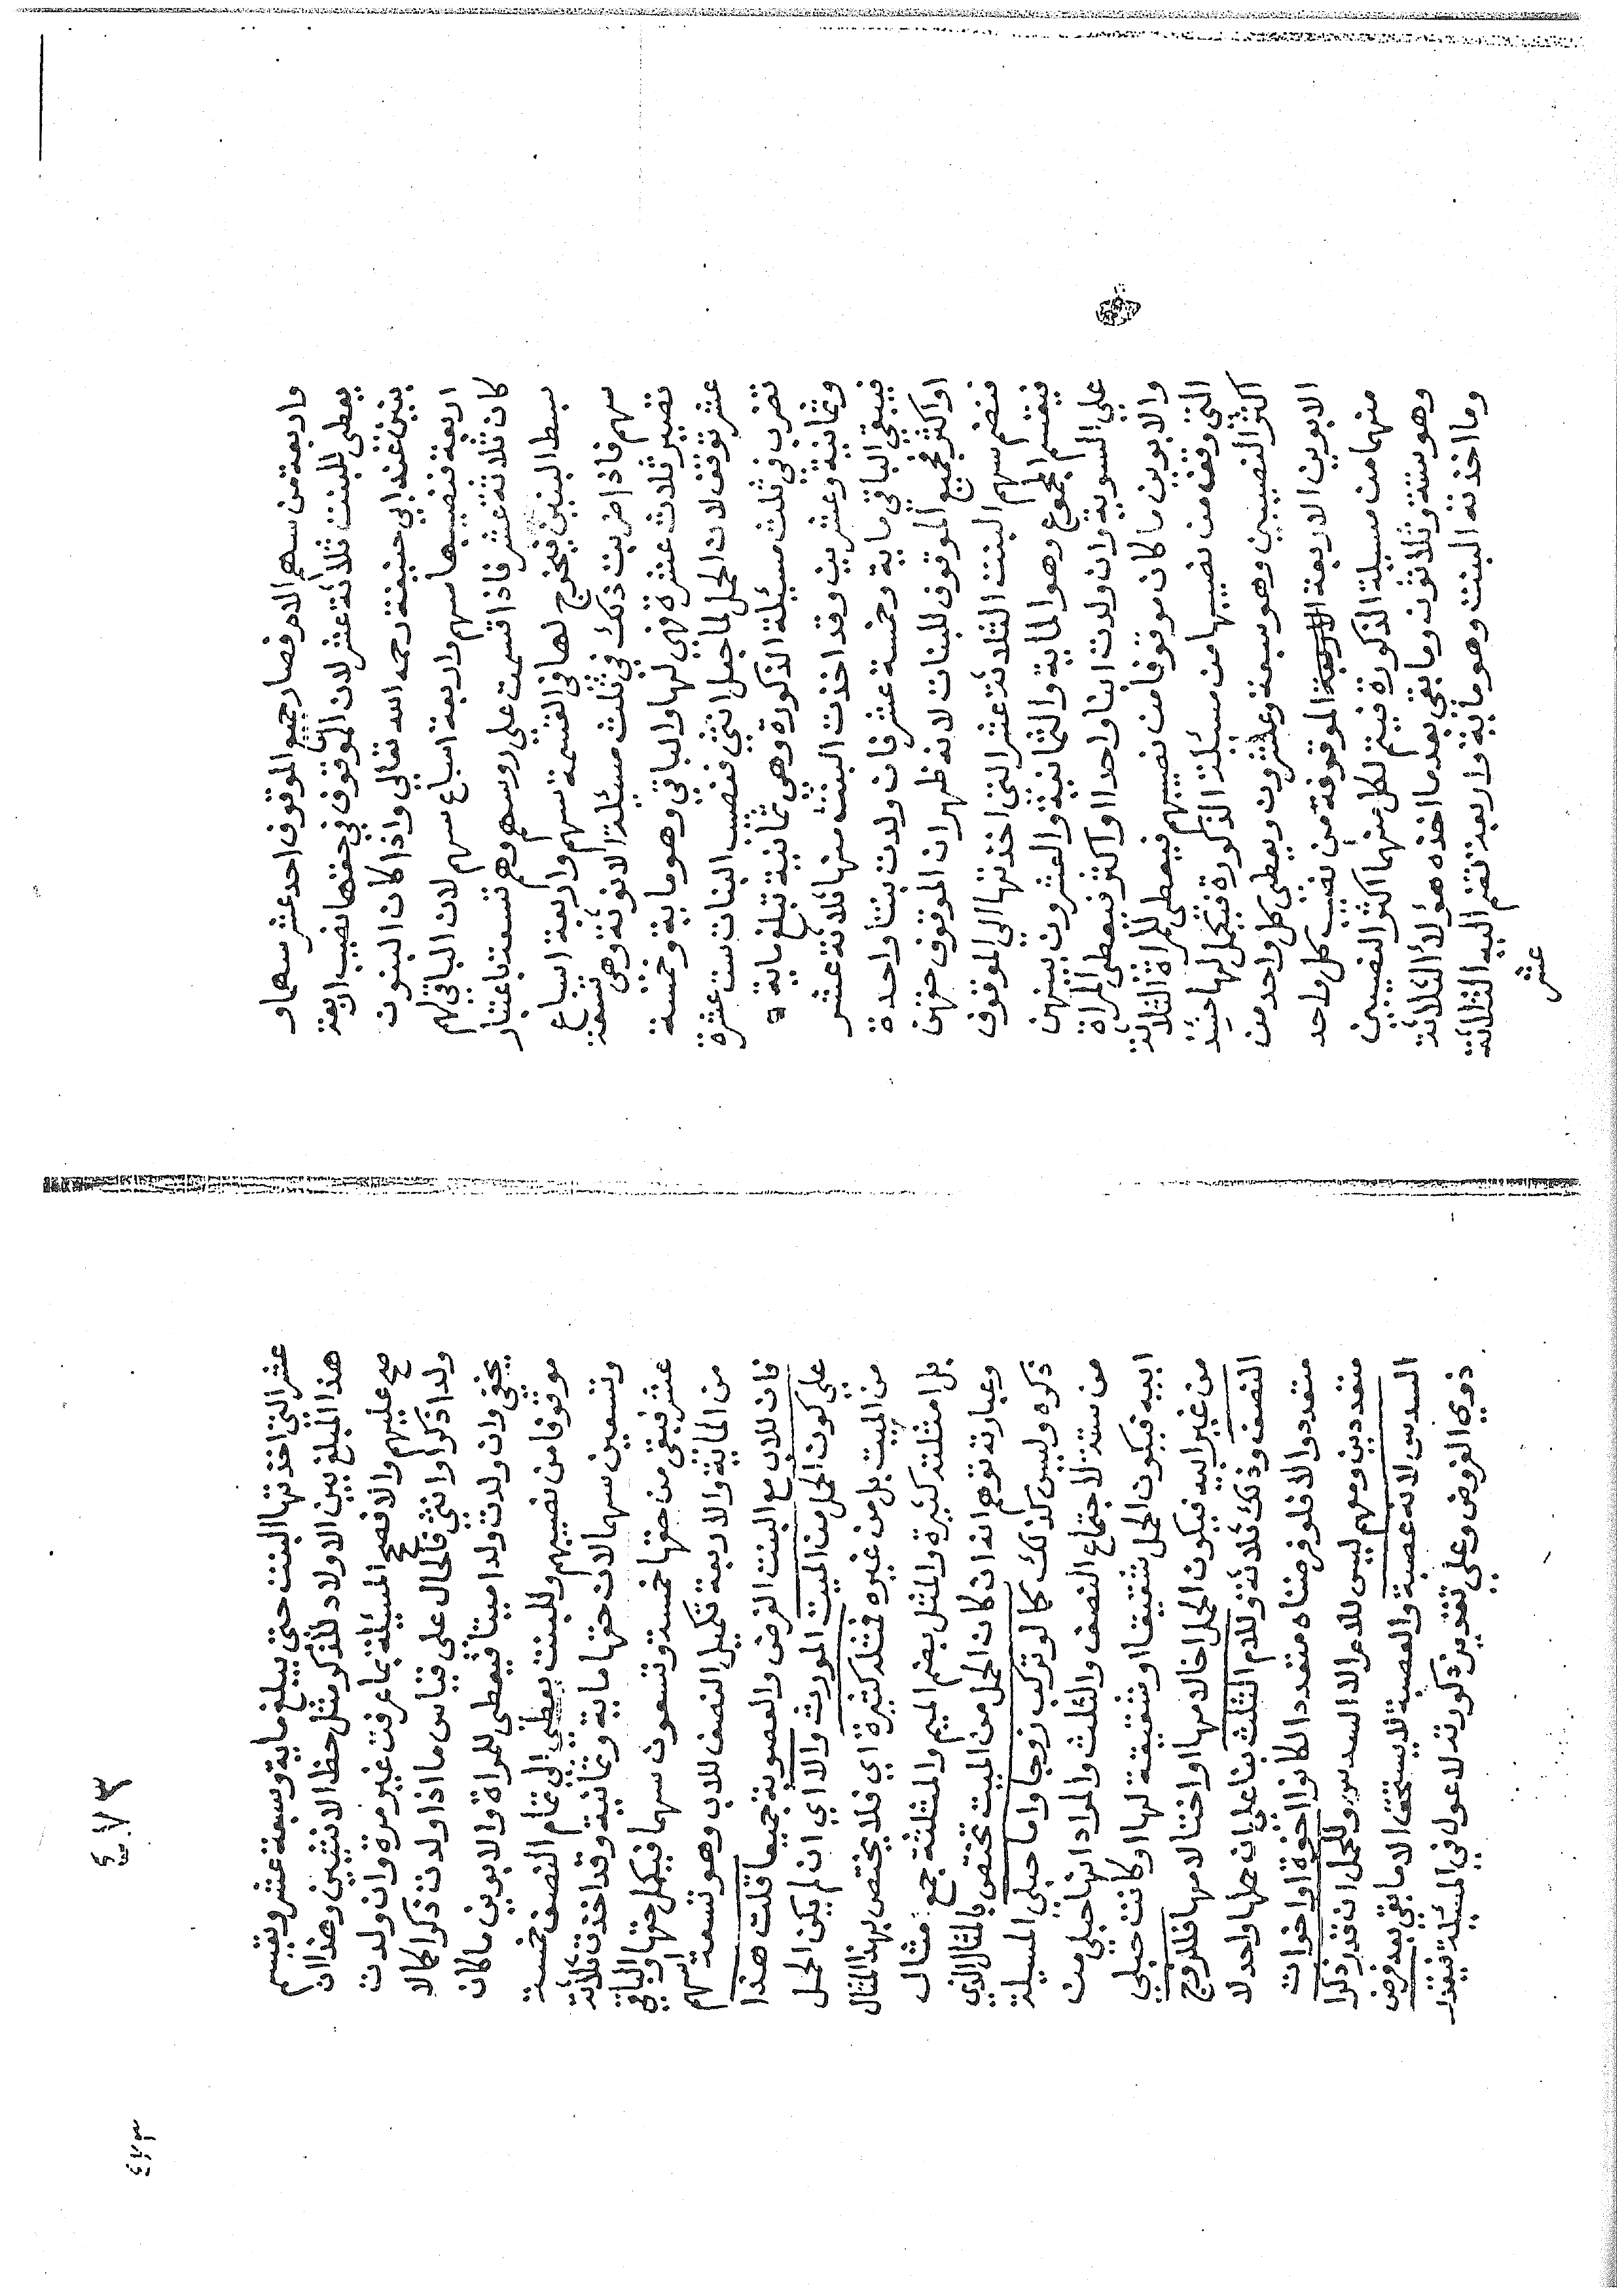 واربعة من سهم الام فصار جميع الموقوف احد عشر سهما و
يعطي للبنت ثلاثة عشر لان الموقوف في حقها نصيب اربعة
بنين عند ابي حنيفة رحمه الله تعالي واذا كان البنون
اربعة فنصيبها سهم واربعة اسباع سهم لان الباقي لهم
كان ثلاثة عشر فاذا قسمت علي روسهم وهم تسعة باعتبار
بسط البنين فيخرج لها في القسمة سهم واربعة اتساع
سهم فاذا ضربت ذلك في ثلث مسيلة الانوثة وهي تسعة
تصير ثلاث عشرة فهي لها والباقي وهو ماية وخمسة
عشر توقف لان الحمل لما جعل انثي فنصيب البنات ست عشرة
تضرب في ثلث مسيلة الذكورة وهي ثمانية تبلغ ماية
وثمانية وعشرين وقد اخذت البنت منها ثلاثة عشر
فيبقي الباقي ماية وخمسة عشر فان ولدت بنتا واحدة
او اكثر فجميع الموقوف للبنات لانه ظهر ان الموقوف حقهن
فنضم سهم البنت الثلاثة عشر التي اخذتها الي الموقوف
فيقسم المجموع وهو الماية والثمانية والعشرون بينهن
علي السوية وان ولدت ابنا واحدا او اكثر فيعطي للمراة
والابوين ما كان موقوفا من نصيبهم فيعطي للمراة الثلاثة
التي وقفت من نصيبها من مسئلة الذكورة فيكمل لها حينئذ
اكثر النصيبين وهو سبعة وعشرون ويعطي كل واحد من
الابوين الاربعة الموقوفة من نصيب كل واحد
منهما من مسيلة الذكورة فيتم لكل منهما اكثر النصيبين
وهو ستة وثلاثون وما بقي بعد ما اخذه هولا الثلاثة
وما اخذته البنت وهو ماية واربعة تضم اليه الثلاثة
عشر
٤٧٣
عشر التي اخذتها البنت حتي يبلغ ماية وسبعة عشر ويقسم
هذا المبلغ بين الاولاد للذكر مثل حظ الانثيين وهذا ان
صح عليهم والا فصحح المسيلة بما عرفت غير مرة وان ولدت
ولدا ذكرا وانثي فالحال علي قياس ما اذا ولدت ذكرا كما لا
يخفي وان ولدت ولدا ميتا فيعطي للمراة والابوين ما كان
موقوفا من نصيبهم وللبنت يعطي الي تمام النصف خمسة
وتسعين سهما لان حقها ماية وثمانية وقد اخذت ثلاثة
عشر فبقي من حقها خمسة وتسعون سهما فيكمل حقها والباقي
من الماية والاربعة تكميل النصف للاب وهو تسعة اسهم
فان للاب مع البنت الفرض والعصوبة جميعا قلت هذا
علي كون الحمل من الميت المورث والا اي ان لم يكن الحمل
من الميت بل من غيره فمثله كثيرة اي فلا يختص بهذا المثال
بل امثلته كثيرة والمثل بضم الميم والمثلثة جمع مثال
وعبارته توهم انه ان كان الحمل من الميت تختص بالمثال الذي
ذكره وليس كذلك كما لو تركت زوجا واما حبلي المسيلة
من ستة لاجتماع النصف والثلث والمراد انها حبلي من
ابيه فيكون الحمل شقيقا او شقيقة لها او كانت حبلي
من غير ابيه فيكون الحمل اخا لامها او اختا لامها فللزوج
النصف وذلك ثلاثة وللام الثلث بناء علي ان حملها واحد لا
متعدد والا فلو فرضناه متعددا لكانوا اخوة او اخوات
متعددين ومعهم ليس للام الا السدس وللحمل ان قدر ذكرا
السدس لانه عصبة والعصبة لا يستحق الا ما بقي بعد فرض
ذوي الفروض وعلي تقدير ذكورته لا عول في المسيلة فيقدر
٤٧٣